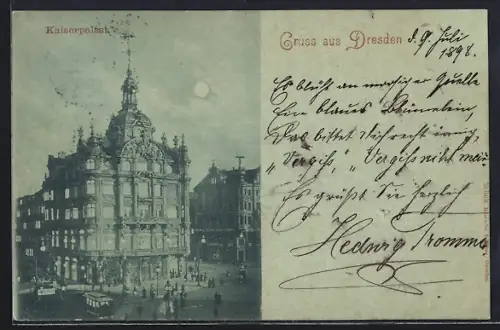 Kaiserpalast.
Gruss aus Dresden
d. 9. Juli
1898.
Es blüht an moosiger Quelle
Ein blaues Blümelein,
Das bittet Dich recht innig,
"Vergiß," "Vergiß nicht mein
Es grüßt Sie herzlich
Hedwig Fromme